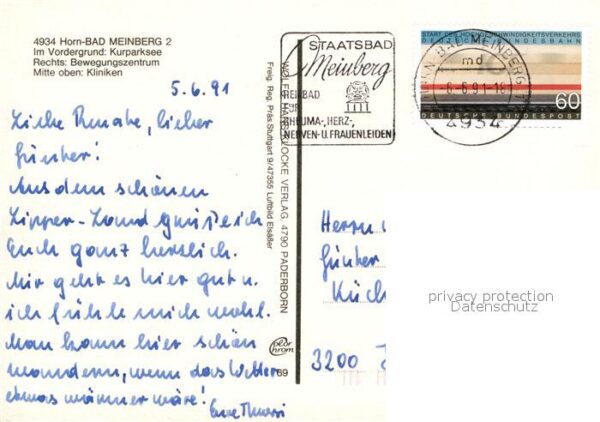 4934 Horn-BAD MEINBERG 2
Im Vordergrund: Kurparksee
Rechts: Bewegungszentrum
Mitte oben: Kliniken
5.6.91
Liebe Renate, lieber
Günter!
Aus dem schönen
Lipper-Land grüße ich
Euch ganz herzlich.
Mir geht es hier gut u.
ich fühle mich wohl.
Man kann hier schön
wandern, wenn das Wetter
etwas wärmer wäre!
Eure
WOLFGANG VERLAG, 4790 PADERBORN
Freig. Reg. Präs. Stuttgart 9/47355 Luftbild Elsäßer
color chrom
69
STAATSBAD
Meinberg
HEILBAD
FÜR
RHEUMA-, HERZ-,
NERVEN-U. FRAUENLEIDEN
HORN-BAD MEINBERG
md
-6.6.91-18
4934
START DES HOCHGESCHWINDIGKEITSVERKEHRS
DEUTSCHE BUNDESBAHN
60
DEUTSCHE BUNDESPOST
Herrn
Günter
3200
privacy protection
Datenschutz